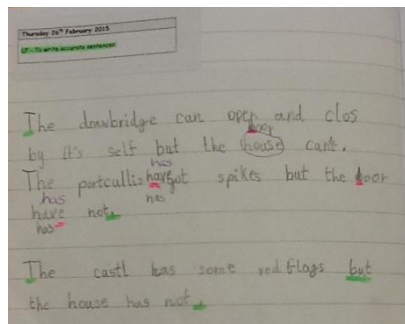 Thursday 26th February 2015
LP - To write accurate sentences
The drawbridge can open and clos
door
by it's self but the house cant.
has
The portcullis have got spikes but the door
has
has
have not.
has
The castl has some red flags but
the house has not.